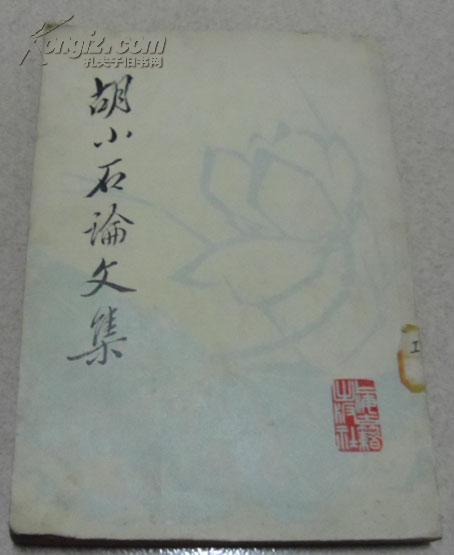 Kongfz.com
孔夫子旧书网
胡小石論文集
上海古籍
出版社